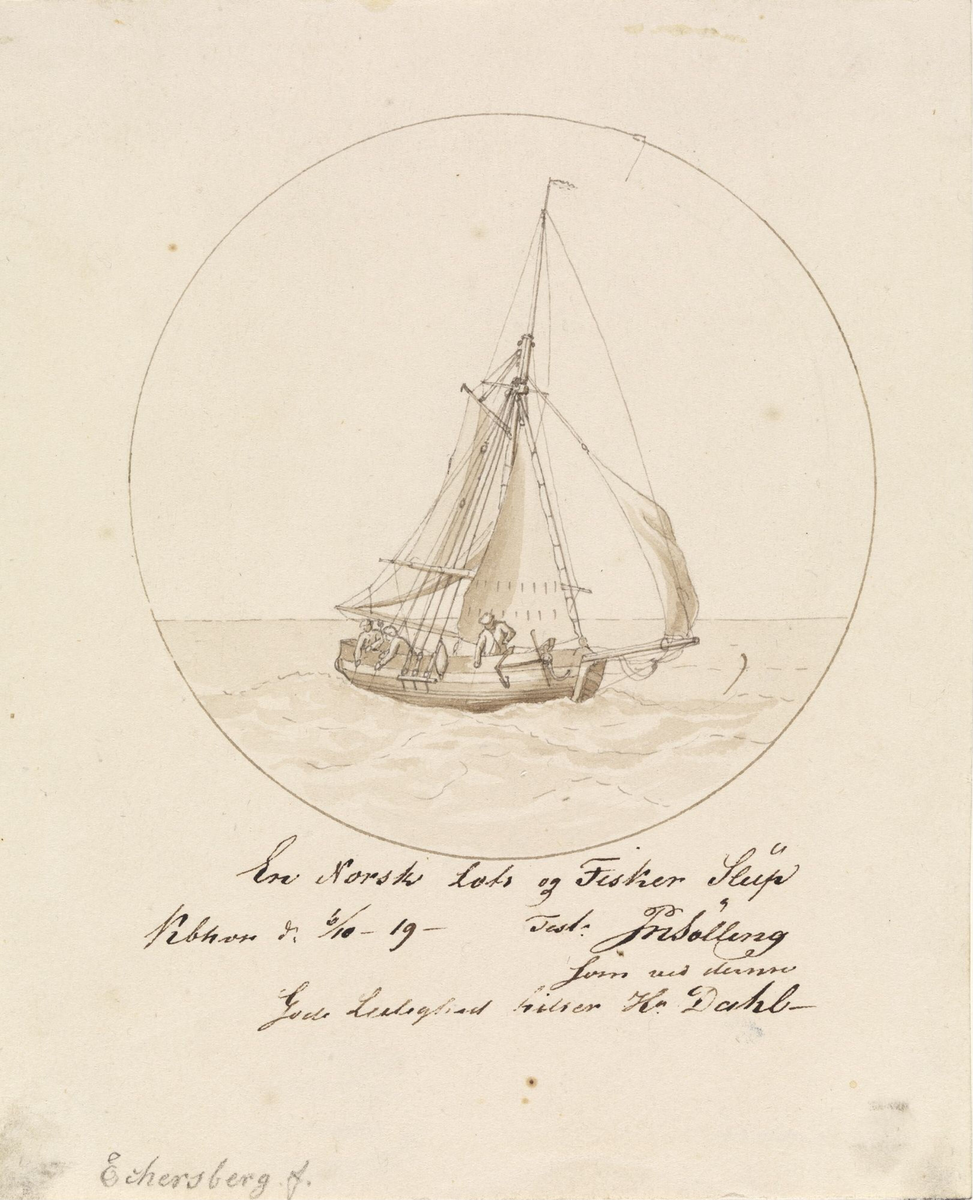 En Norsk Lots og Fisker Slüp
Kbhvn d. 6/10 - 19 - Test: PNSölling
Som ved denne
Gode Leilighed hilser Hr Dahl -
Eckersberg f.